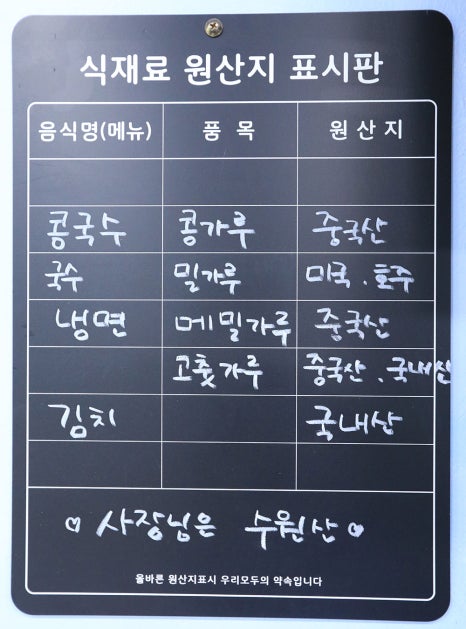 식재료 원산지 표시판
음식명(메뉴) 품 목 원 산 지
콩국수 콩가루 중국산
국수 밀가루 미국 . 호주
냉면 메밀가루 중국산
고춧가루 중국산 . 국내산
김치 국내산
♡ 사장님은 수원산 ♡
올바른 원산지표시 우리모두의 약속입니다